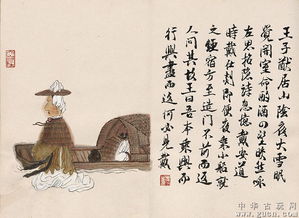 王子猷居山陰夜大雪眠
覺開室命酌酒四望皎然咏
左思招隱詩忽憶戴安道
時戴在剡即便夜乘小船就
之經宿方至造門不前而返
人問其故王曰吾本乘興而
行興盡而返何必見戴
中華古玩網
www.gucn.com